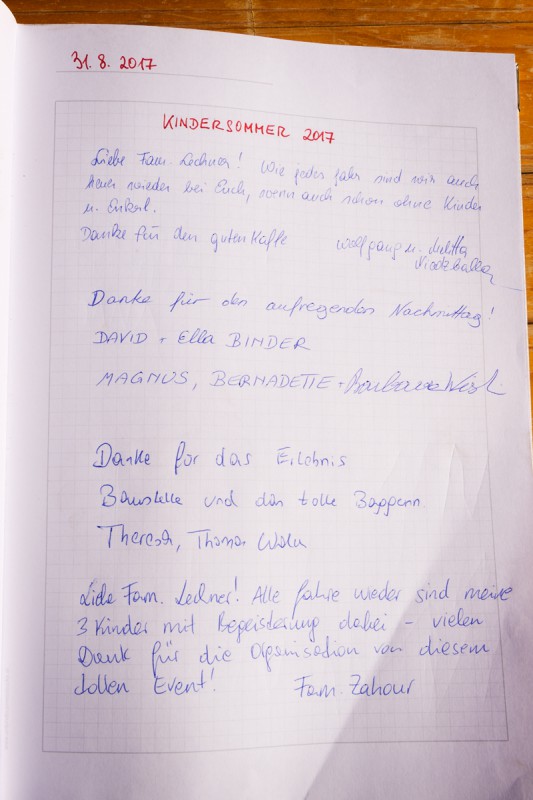 31.8. 2017
KINDERSOMMER 2017
Liebe Fam. Lechner! Wie jedes Jahr sind wir auch
heuer wieder bei Euch, wenn auch schon ohne Kinder
u. Enkerl.
Danke für den guten Kaffe
Wolfgang u.
Danke für den aufregenden Nachmittag!
DAVID + Ella BINDER
MAGNUS, BERNADETTE + Barbara
Danke for das Erlebnis
Baustelle und das tolle Baggern.
Theresa, Thomas
Liebe Fam. Lechner! Alle Jahre wieder sind meine
3 Kinder mit Begeisterung dabei - vielen
Dank für die Organisation von diesem
tollen Event!
Fam. Zahour